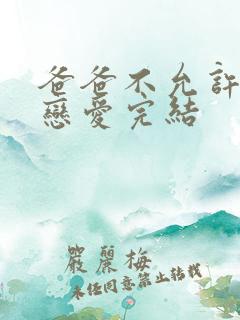 爸爸不允許
戀愛完結
嚴麗梅
未經同意禁止轉載